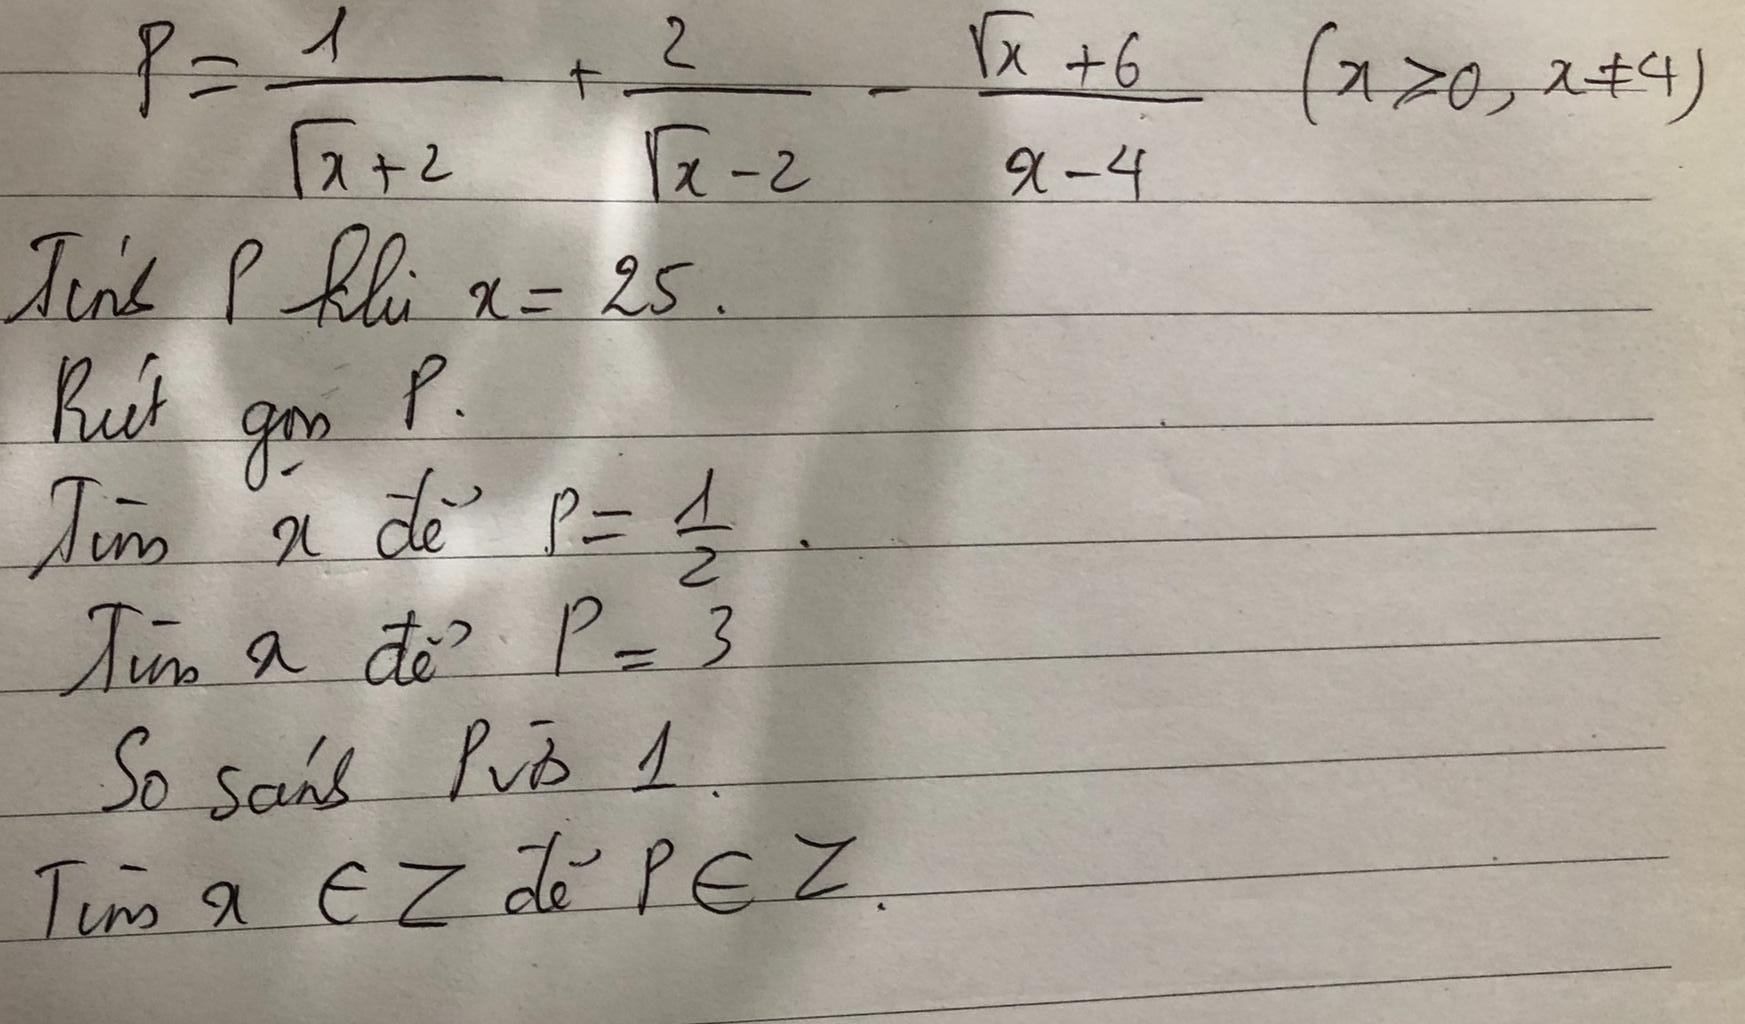 P = 1/(√x + 2) + 2/(√x - 2) - (√x + 6)/(x - 4) (x ≥ 0, x ≠ 4)
Tính P khi x = 25.
Rút gọn P.
Tìm x để P = 1/2.
Tìm x để P = 3
So sánh P với 1.
Tìm x ∈ Z để P ∈ Z.